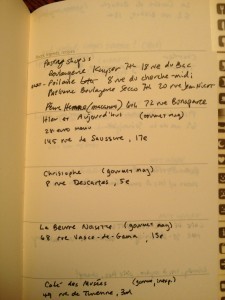 Pastry Shops:
Boulangerie Kayser 7th 18 rue du Bac
Poilane 8 rue du cherche-midi
Patisserie Boulangerie Secco 7th 20 rue Jean Nicot
Pierre Hermé (macarons) 6th 72 rue Bonaparte
Hier et Aujourd'hui (gourmet mag)
28 euro menu
145 rue de Saussure, 17e
Christophe (gourmet mag)
8 rue Descartes, 5e
Le Beurre Noisette (gourmet mag)
68 rue Vasco-de-Gama, 15e
Café des Musées
49 rue de Turenne, 3rd